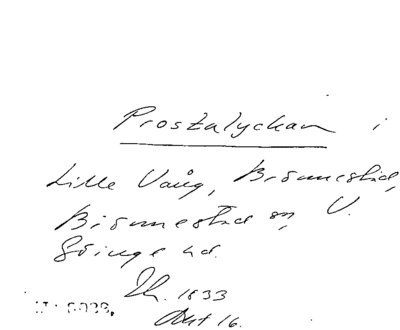 Prostalyckan i
Lille Vång, Brönnestad,
Brönnestad sn, V.
Göinge hd.
Lh. 1833
Akt 16.